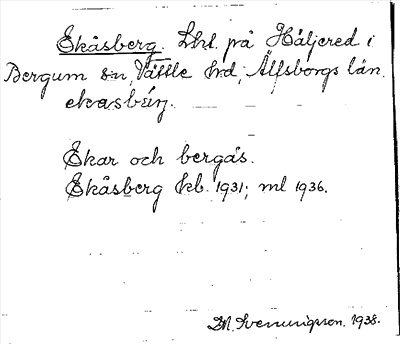 Ekåsberg. Lht. på Häljered i
Bergum sn, Vättle hd, Älfsborgs län.
ekasbärj.
Ekar och bergås.
Ekåsberg kb. 1931; ml 1936.
1938.